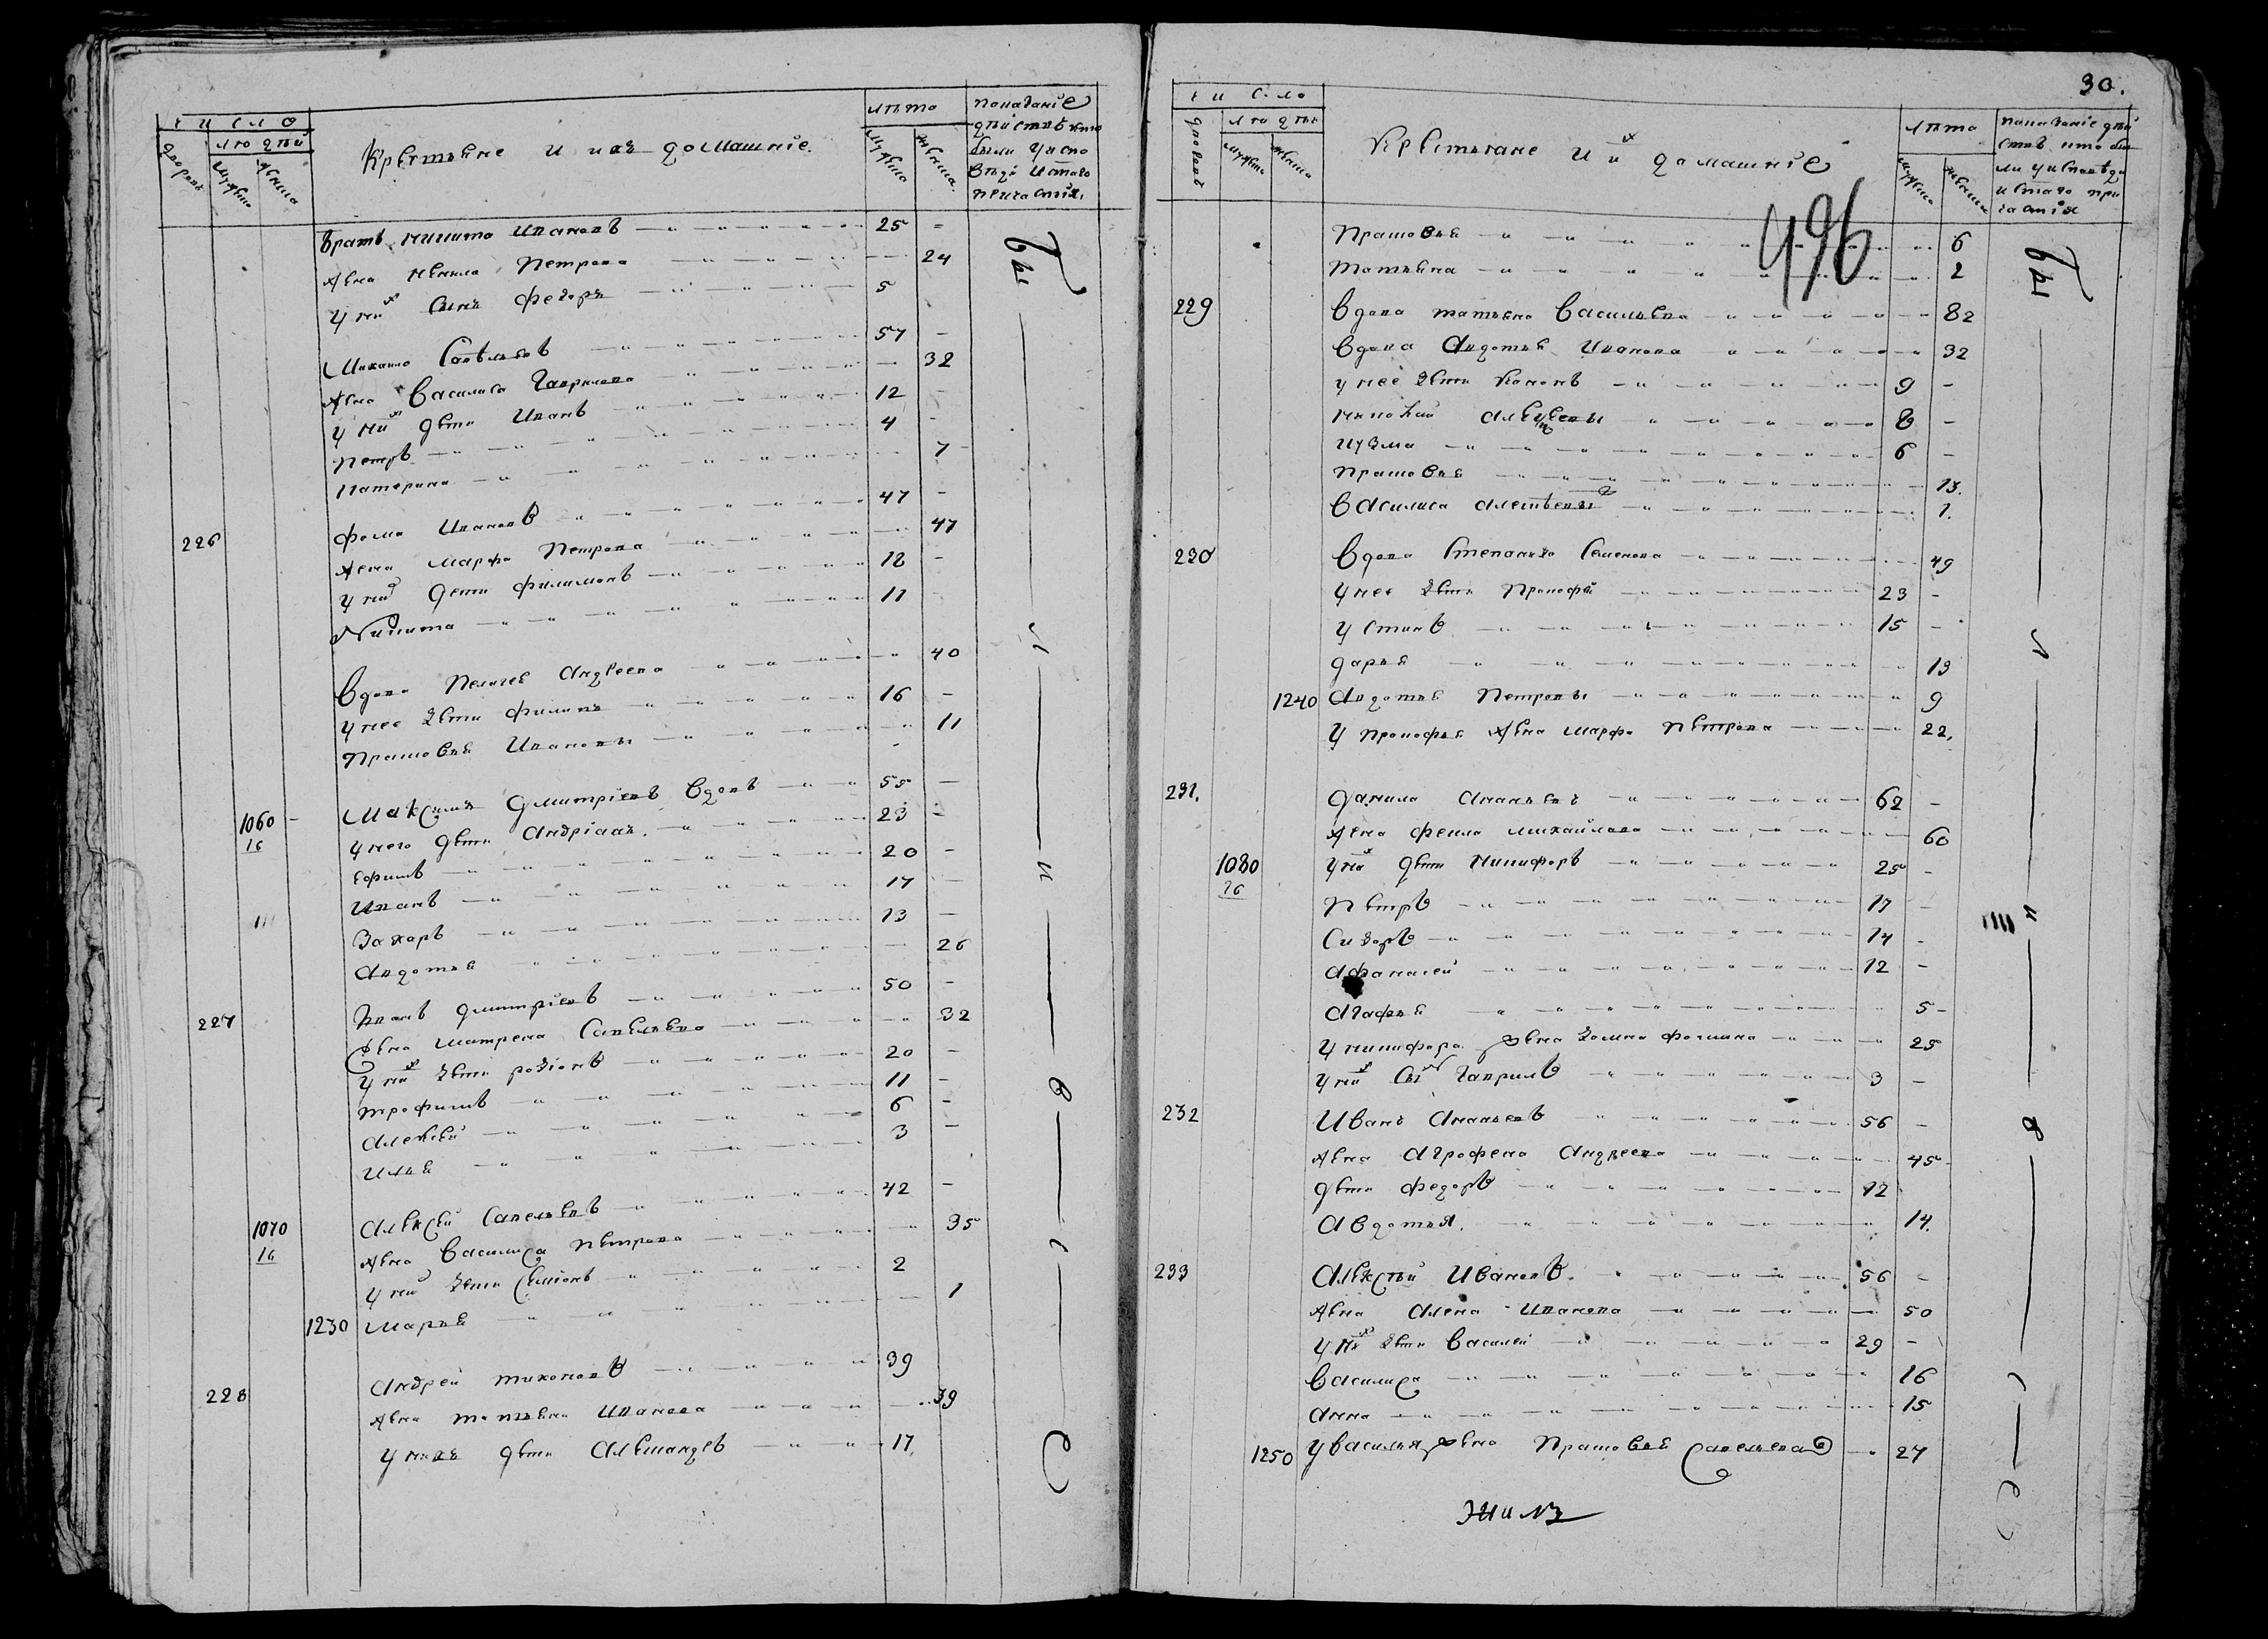 число
людей
дворовъ
мужеска
женска
Крестьяне и ихъ домашніе
лѣта
мужеска
женска
показаніе
дѣйствъ кто
были у испо
вѣди и с͠таго
причастія
братъ никита ивановъ 25
жена ненила петрова 24
у ниͯ сынъ федоръ 5
Михаило Савельевъ 57
жена Василиса Гаврилова 32
у ниͯ дети иванъ 12
петръ 4
катерина 7
226 фома ивановъ 47
жена марфа петрова 47
у ниͯ дети филимонъ 18
никита 11
вдова пелагея андреева 40
у нее дети филипъ 16
прасковья ивановы 11
1060 максимъ дмитріевъ вдовъ 55
16 у него дети андріанъ 23
ефимъ 20
иванъ 17
захаръ 13
авдотья 26
227 иванъ дмитріевъ 50
жена матрена савельева 32
у ниͯ дети родіонъ 20
трофимъ 11
алексей 6
илья 3
1070 алексей савельевъ 42
16 жена василиса петрова 35
у ниͯ дети симіонъ 2
1230 марья 1
228 андрей тихоновъ 39
жена татьяна иванова 39
у нихъ дети александръ 17
бы л и в с е
30.
число
людей
дворовъ
мужеска
женска
Крестьяне и иͯ домашніе
лѣта
мужеска
женска
показаніе дѣй
ствъ кто бы
ли у исповѣди
и с͠таго при
частія
496
прасковья 6
татьяна 2
229 вдова татьяна васильева 82
вдова авдотья иванова 32
у нее дети кононъ 9
8
кузма 6
прасковья 13.
василиса алексеевы 1.
230 вдова степанида семенова 49
у нее дети прокофей 23
устинъ 15
дарья 13
1240 авдотья петровы 9
у прокофья жена марфа петрова 22.
231. данила ананьевъ 62
жена фекла михайлова 60
1080 у ниͯ дети никифоръ 25
26 петръ 17
сидоръ 14
афанасей 12
агафья 5
у никифора жена фомина 25
у ниͯ сы͠ гаврилъ 3
232 иванъ ананьевъ 56
жена аграфена андреева 45
дети федоръ 12
авдотья. 14.
233 алексѣй ивановъ. 56
жена алена иванова 50
у ниͯ дети василей 29
василиса 16
анна 15
1250 у василья жена прасковья савельева 27
бы л и в с е